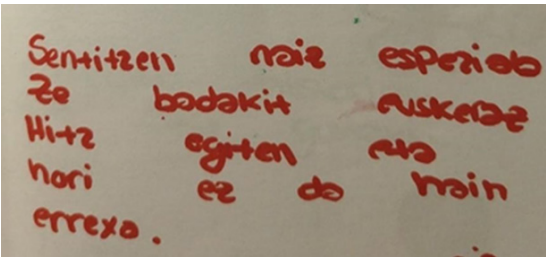 Sentitzen naiz espeziala
Ze badakit euskeraz
Hitz egiten eta
hori ez da hain
errexa.